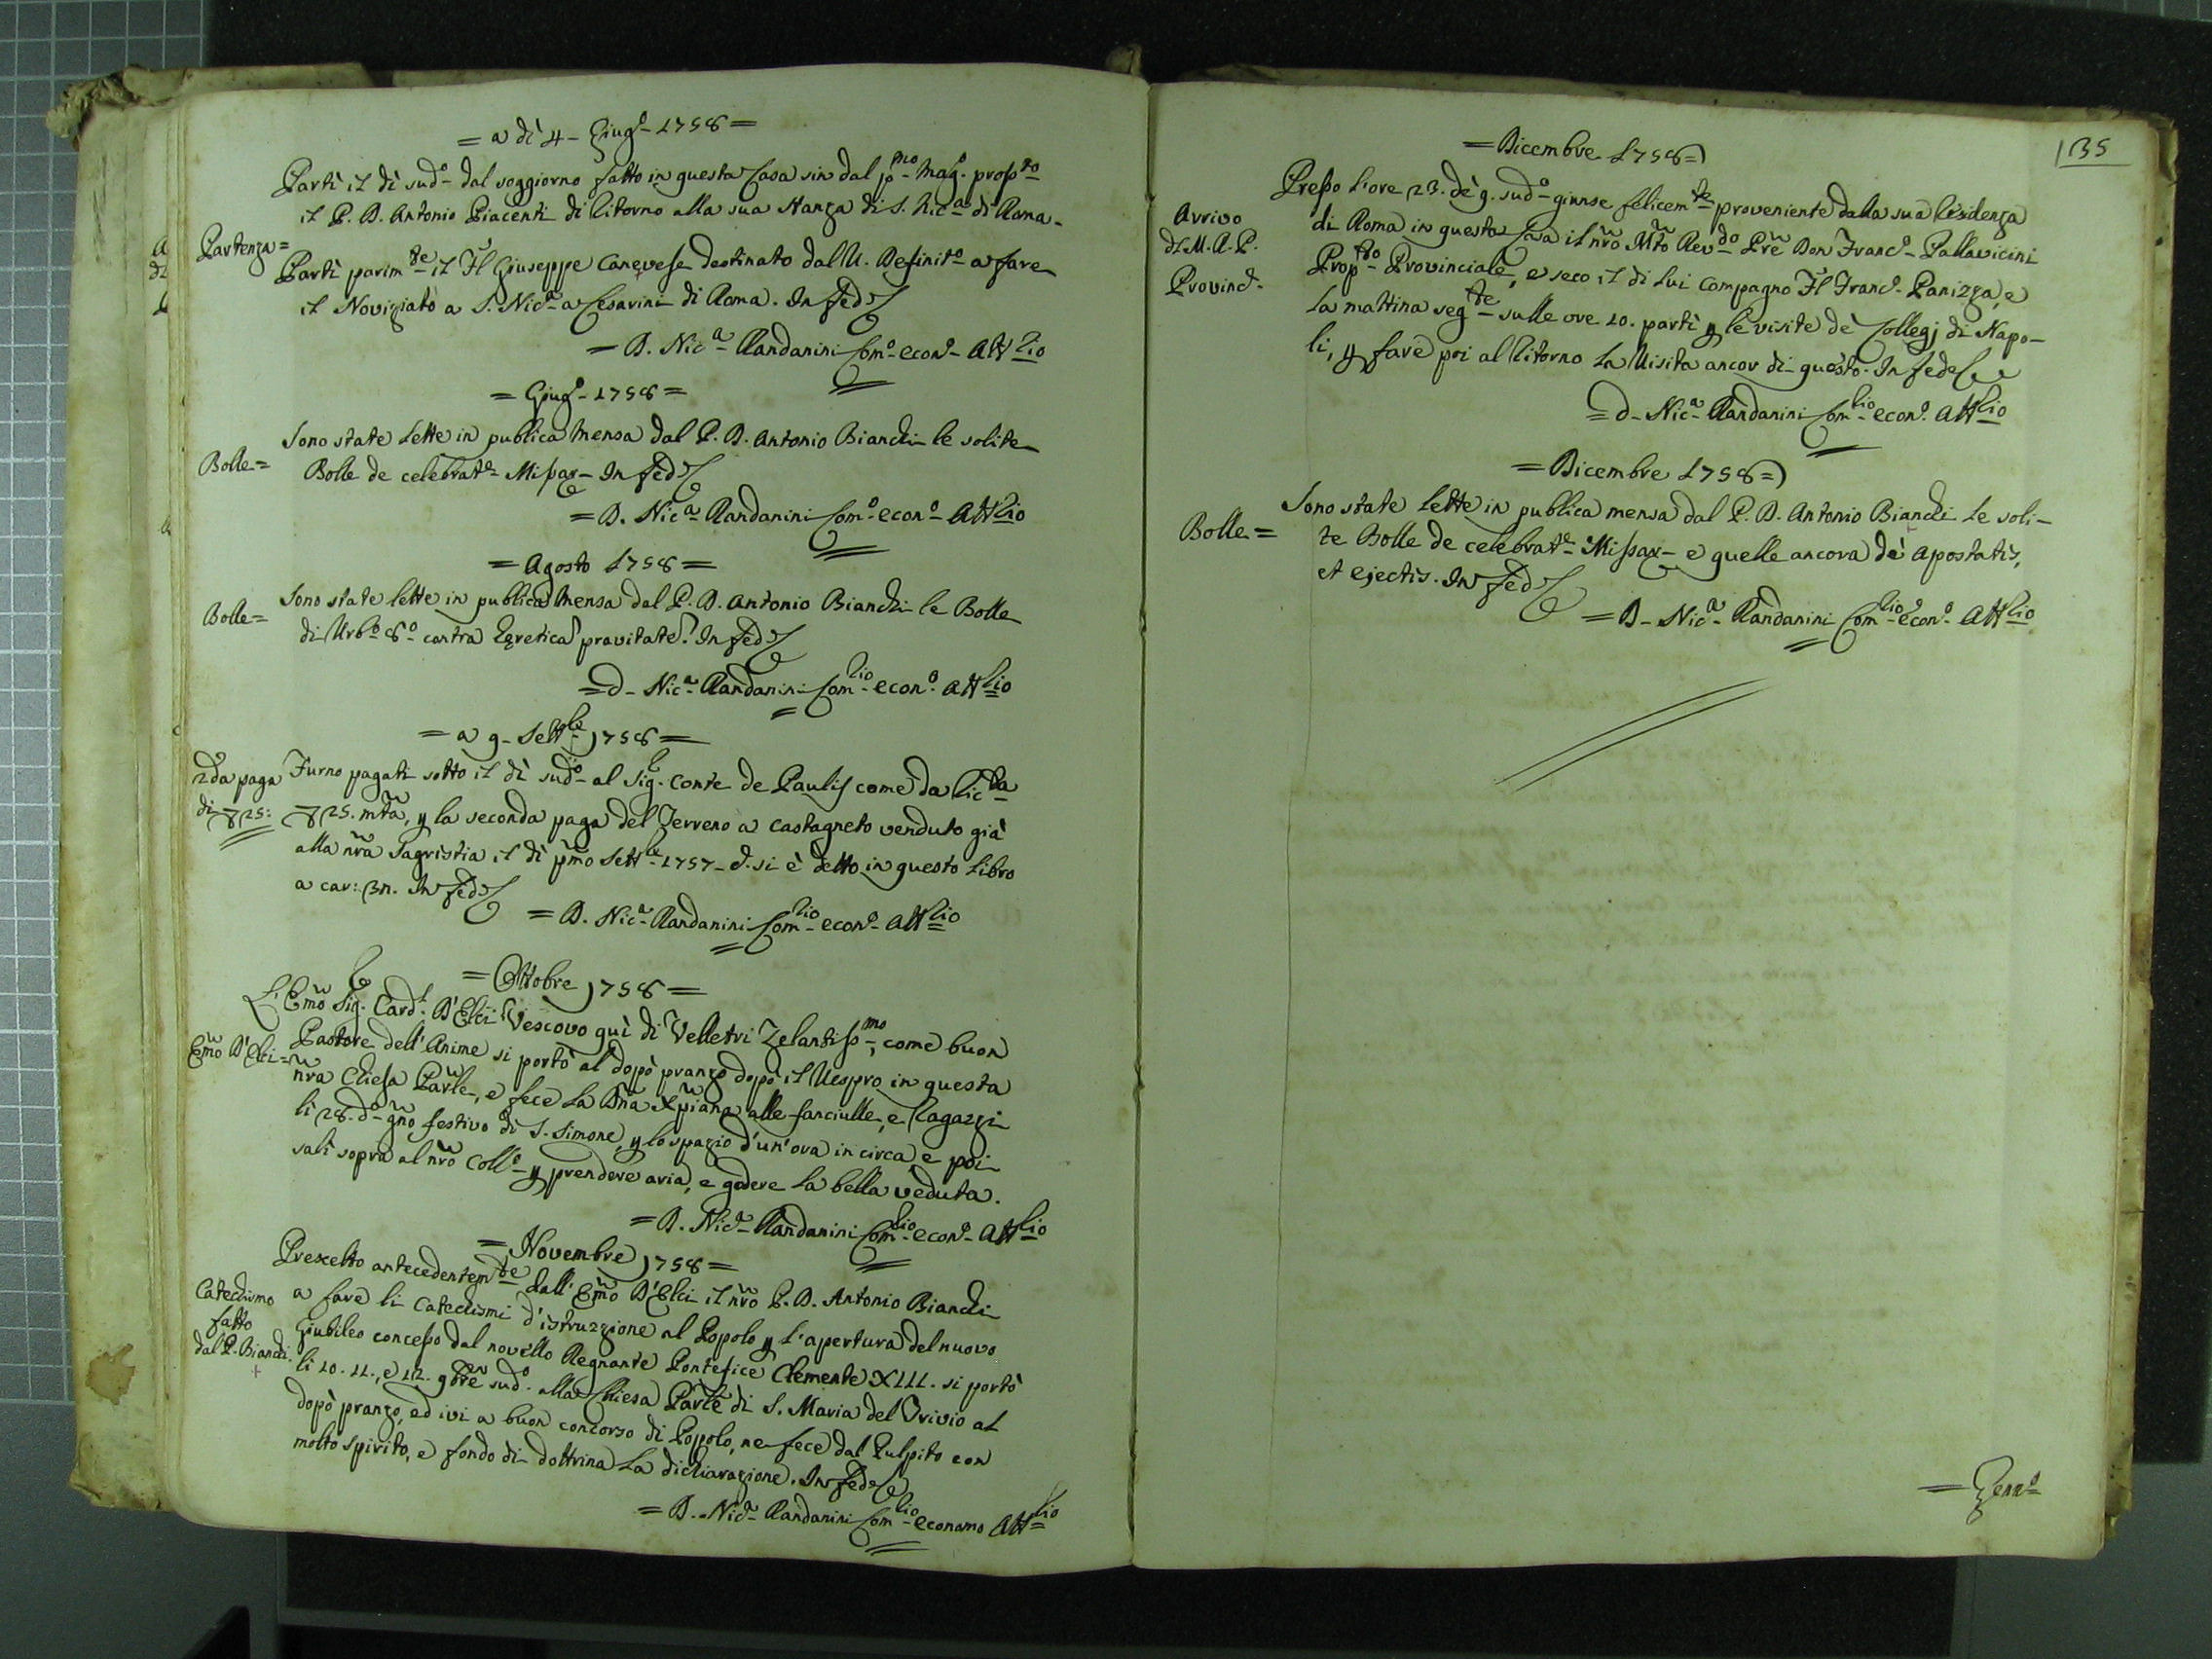 = a dì 4 - Giug.o 1758 =
Partì il dì sud.o dal soggiorno fatto in questa Casa sin dal p.mo Mag.o pross.o
il P. D. Antonio Piacenti di ritorno alla sua stanza di S. Nic.a di Roma.
Partenza =
Partì parim.te il Fl Giuseppe Canevese destinato dal V. Definit.o a fare
il Noviziato a S. Nic.a a Cesarini di Roma. In fede
= D. Nic.a Randanini Com.o econ.o Att.lio
= Giug.o 1758 =
Sono state lette in publica Mensa dal P. D. Antonio Bianchi le solite
Bolle =
Bolle de celebrat.e Missar. In fede
= D. Nic.a Randanini Com.o econ.o Att.lio
= Agosto 1758 =
Sono state lette in publica Mensa dal P. D. Antonio Bianchi le Bolle
Bolle =
di Urb.o 8.o contra pravitate. In fede
= D. Nic.a Randanini Com.lio econ.o Att.lio
= a 9 - Sett.be 1758 =
2da paga
di 25:
Furno pagati sotto il dì sud.o al Sig. Conte de Paulis come da ric.ta
25. mta, p la seconda paga del Terreno a Castagneto venduto già
alla nra Sagristia il dì pmo Sett.be 1757 - si è detto in questo libro
a car: In fede
= D. Nic.a Randanini Com.lio econ.o Att.lio
= Ottobre 1758 =
L'Emo Sig. Card.l D'Elci Vescovo quì di Velletri Zelantiss.mo, come buon
Emo D'Elci =
Pastore dell'Anime si portò al dopò pranzo dopò il Vespro in questa
nra Chiesa Parle, e fece la Dna Xpiana alle fanciulle, e Ragazzi
li 28. d.o gno festivo di S. Simone, p lo spazio d'un'ora in circa e poi
salì sopra al nro Coll.o p prendere aria, e godere la bella veduta.
= D. Nic.a Randanini Com.lio econ.o Att.lio
= Novembre 1758 =
Prescelto antecedentem.te dall'Emo D'Elci il nro P. D. Antonio Bianchi
Catechismo
fatto
dal P. Bianchi.
a fare li Catechismi d'istruzzione al Popolo p l'apertura del nuovo
Giubileo concesso dal novello Regnante Pontefice Clemente XIII. si portò
li 10. 11., e 12. 9bre sud.o alla Chiesa Parle di S. Maria del Trivio al
dopò pranzo, ed ivi a buon concorso di Popolo, ne fece dal Pulpito con
molto spirito, e fondo di dottrina la dichiarazione. In fede
= D. Nic.a Randanini Com.lio economo Att.lio
135
= Dicembre 1758 =
Presso l'ore 23. dè 9. sud.o giunse felicem.te proveniente dalla sua Residenza
Arrivo
del M. R. P.
Provinc.
di Roma in questa Casa il nro Mto Rev.do Pre Don Franc.o Pallavicini
Prop.to Provinciale, e seco il di lui Compagno Fl Franc.o Panizza, e
la mattina seg.te sulle ore 10. partì p le visite dè Collegj di Napo-
li, p fare poi al Ritorno la Visita ancor di questo. In fede
= D. Nic.a Randanini Com.lio econ.o Att.lio
= Dicembre 1758 =
Sono state lette in publica mensa dal P. D. Antonio Bianchi le soli-
Bolle =
te Bolle de celebrat.e Missar. e quelle ancora de Apostatis,
et ejectis. In fede
= D. Nic.a Randanini Com.lio econ.o Att.lio
= Genn.o